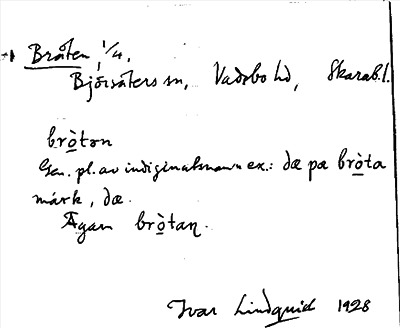 Bråten, 1/4,
Björsäters sn, Vadsbo hd, Skarab. l.
brȯtən
Gen. pl. av indigenatsnamn ex.: dæ pa brȯta
márk, dæ.
Ägan brȯtaṇ.
Ivar Lindquist 1928